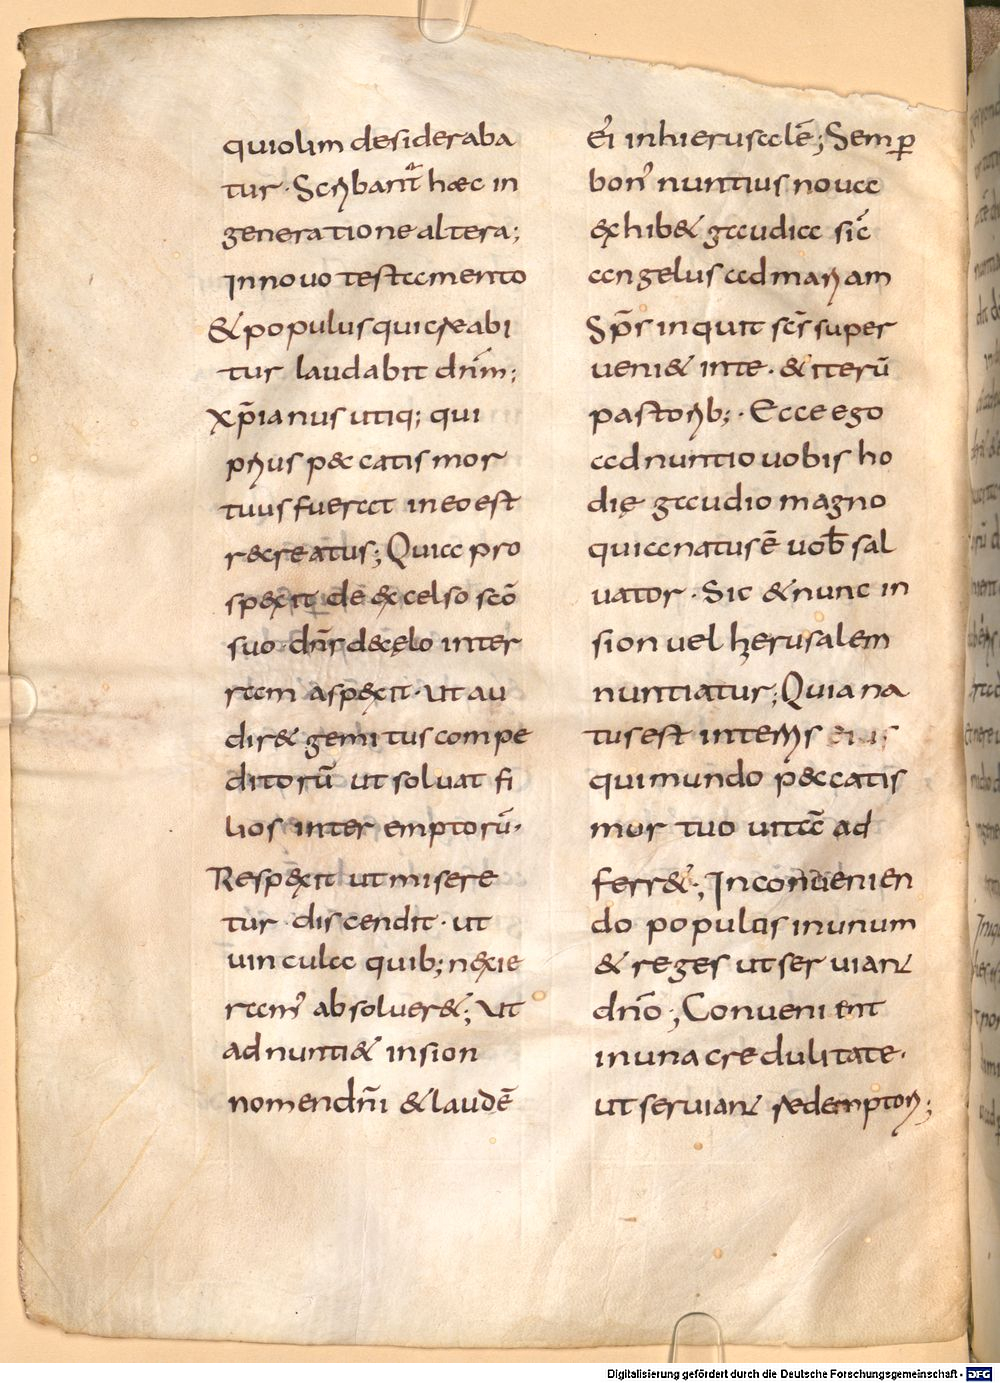 quiolim desideraba
tur · Scribant̃ hæc in
generatione altera;
In nouo testamento
& populus qui creabi
tur laudabit dnm̃;
Xp̃ianus utiq; qui
prius peccatis mor
tuus fuerat in eo est
recreatus; Quia pro
spexit de excelso scõ
suo dñs de cęlo inter
ram aspexit · ut au
dir& gemitus compe
ditorũ ut soluat fi
lios inter emptorũ·
Respexit ut misere
tur discendit · ut
uincula quib; nexie
ram' absoluer&; Ut
adnunti& in sion
nomen dñi & laudẽ
ei' in hierusalẽ; Semp
bon' nuntius noua
exhib& gaudia sic̃
angelus ad mariam
Sp̃s inquit scs̃ super
ueni& in te · & iterũ
pastorib; · Ecce ego
adnuntio uobis ho
die gaudio magno
quia natus ẽ uob̃ sal
uator · Sic & nunc in
sion uel hierusalem
nuntiatur; Quia na
tus est in terris eius
qui mundo peccatis
mortuo uitã ad
ferr&; In conuenien
do populus in unum
& reges ut seruiant
dño; Conuenient
in una credulitate·
ut seruiant redemptori;
Digitalisierung gefördert durch die Deutsche Forschungsgemeinschaft - DFG